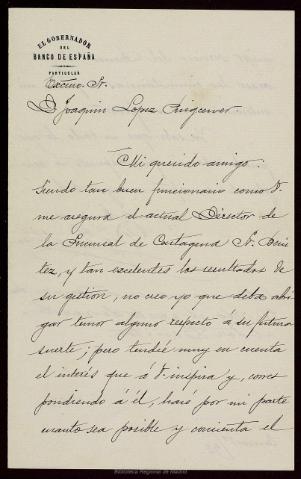 EL GOBERNADOR
DEL
BANCO DE ESPAÑA
PARTICULAR
Excmo. Sr.
D. Joaquín López Puigcerver
Mi querido amigo:
Siendo tan buen funcionario como V.
me asegura el actual Director de
la Sucursal de Cartagena Sr. Beni
tez, y tan excelentes los resultados de
su gestión, no creo yo que deba abri
gar temor alguno respecto á su futura
suerte; pero tendré muy en cuenta
el interés que á V. inspira y, corres
pondiendo á él, haré por mi parte
cuanto sea posible y convenga el
Biblioteca Regional de Madrid